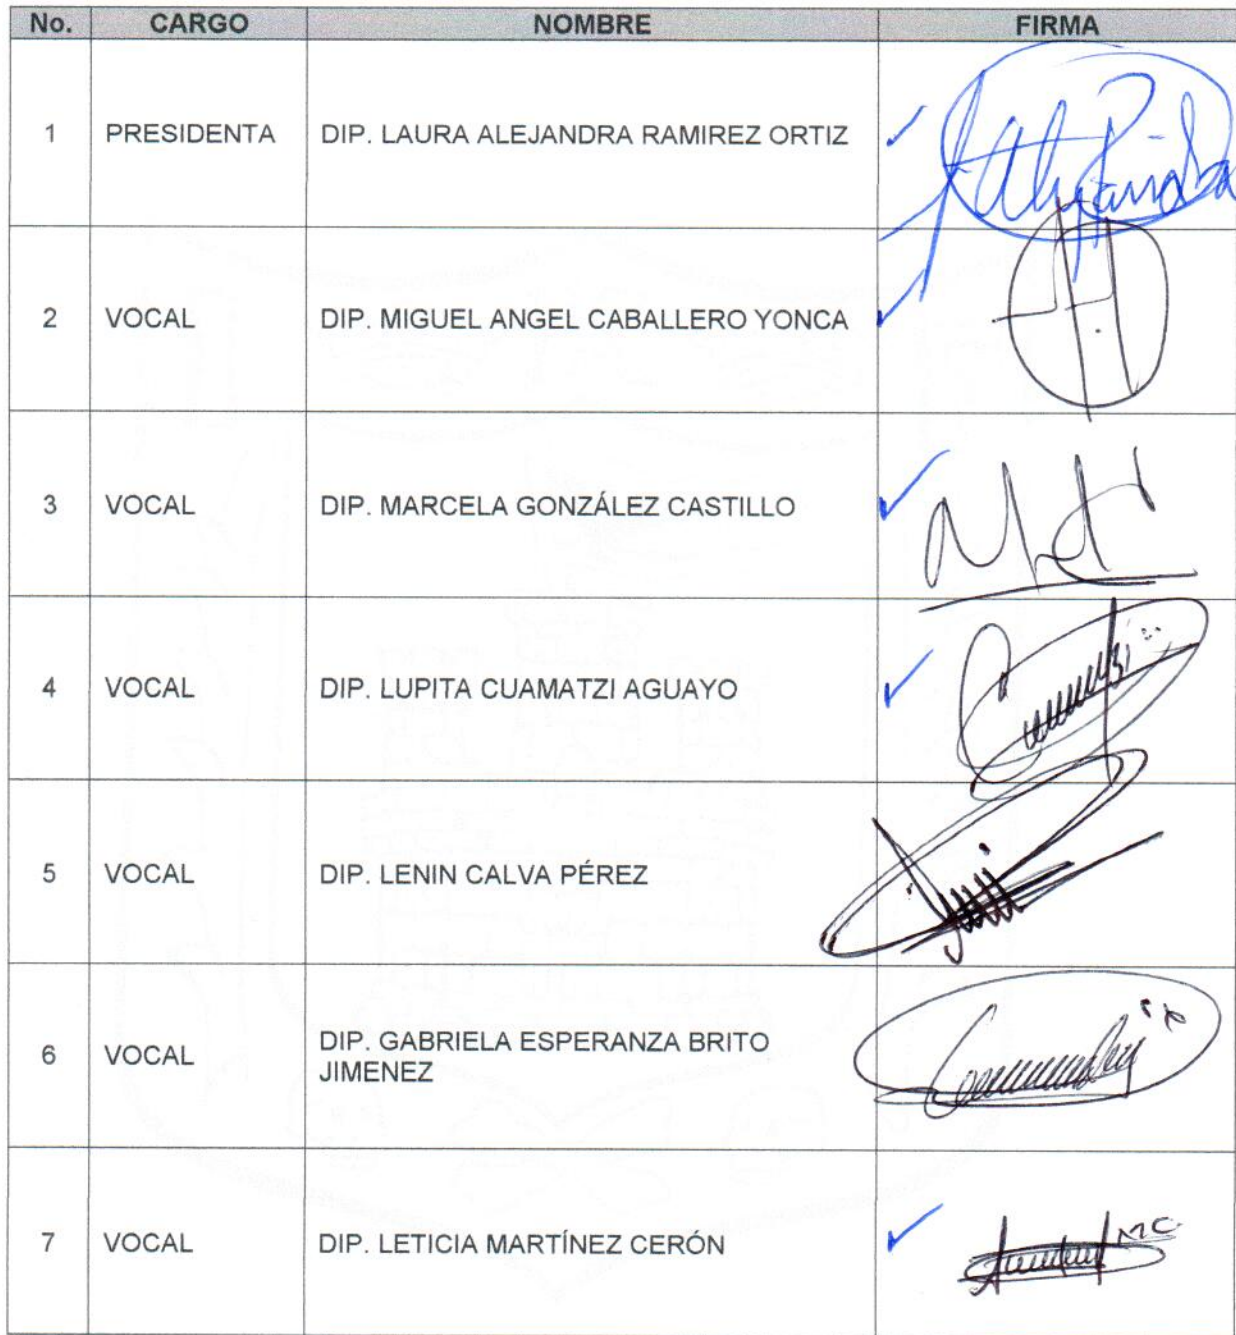 No. CARGO NOMBRE FIRMA
1 PRESIDENTA DIP. LAURA ALEJANDRA RAMIREZ ORTIZ
2 VOCAL DIP. MIGUEL ANGEL CABALLERO YONCA
3 VOCAL DIP. MARCELA GONZÁLEZ CASTILLO
4 VOCAL DIP. LUPITA CUAMATZI AGUAYO
5 VOCAL DIP. LENIN CALVA PÉREZ
6 VOCAL DIP. GABRIELA ESPERANZA BRITO
JIMENEZ
7 VOCAL DIP. LETICIA MARTÍNEZ CERÓN